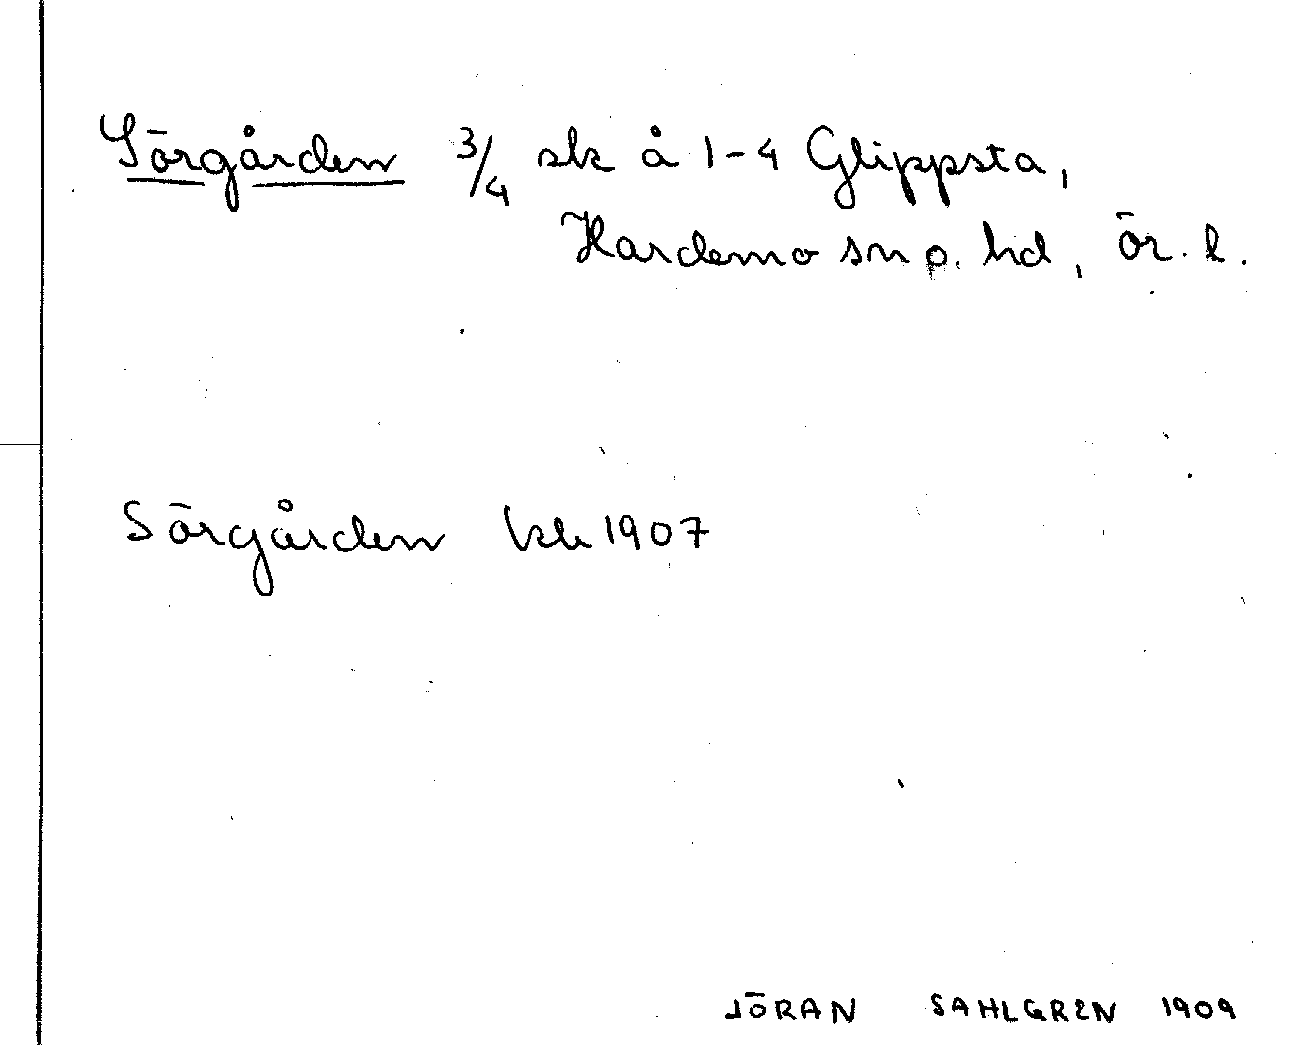 Sörgården 3/4 sk å 1-4 Glippsta,
Hardemo sn o. hd, Ör. l.
Sörgården kk 1907
JÖRAN SAHLGREN 1909